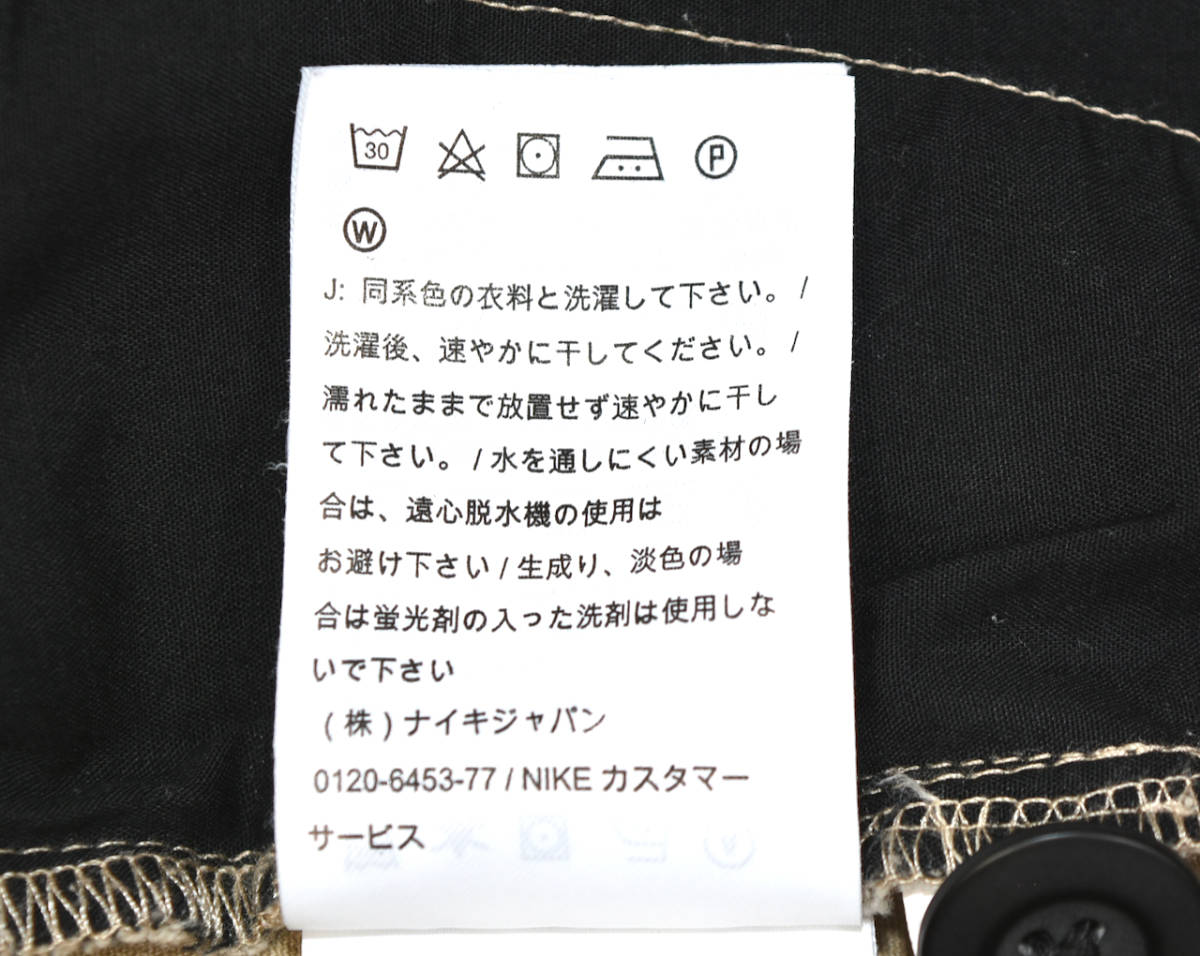 30
P
W
J: 同系色の衣料と洗濯して下さい。 /
洗濯後、速やかに干してください。 /
濡れたままで放置せず速やかに干し
て下さい。 / 水を通しにくい素材の場
合は、遠心脱水機の使用は
お避け下さい / 生成り、淡色の場
合は蛍光剤の入った洗剤は使用しな
いで下さい
( 株 ) ナイキジャパン
0120-6453-77 / NIKE カスタマー
サービス